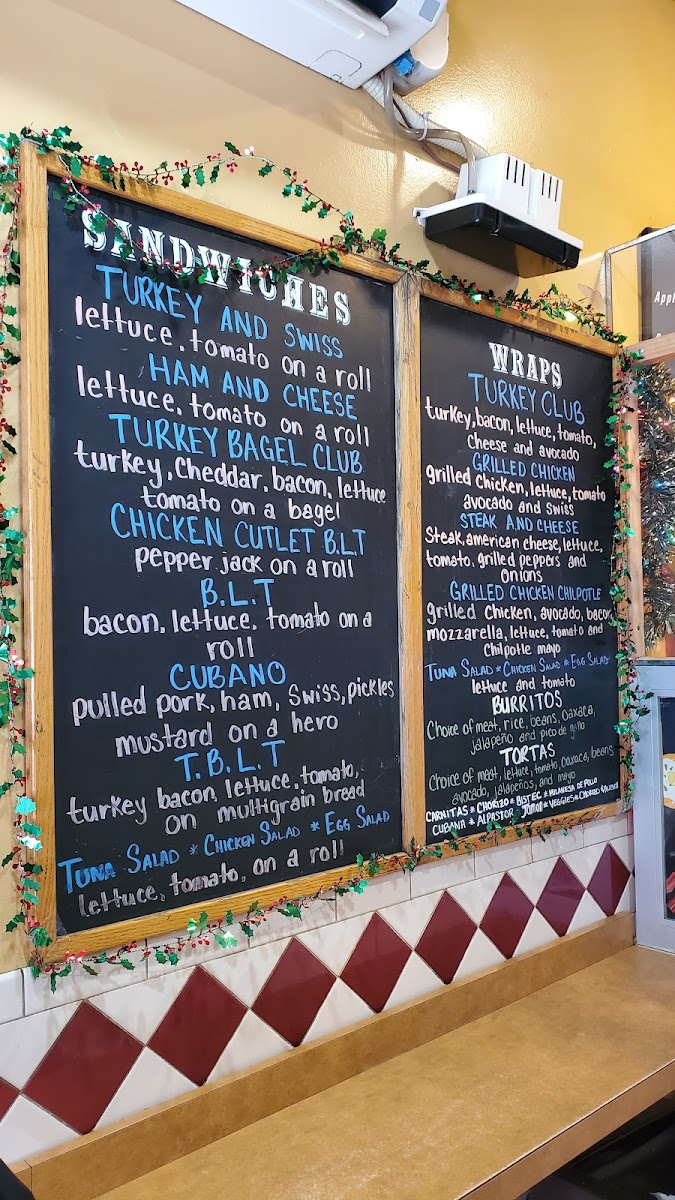 SANDWICHES
TURKEY AND SWISS
lettuce. tomato on a roll
HAM AND CHEESE
lettuce. tomato on a roll
TURKEY BAGEL CLUB
turkey, Cheddar. bacon, lettuce
tomato on a bagel
CHICKEN CUTLET B.L.T
pepper jack on a roll
B.L.T
bacon. lettuce. tomato on a
roll
CUBANO
pulled pork, ham, Swiss, pickles
mustard on a hero
T.B.L.T
turkey bacon, lettuce. tomato,
on multigrain bread
TUNA SALAD * CHICKEN SALAD * EGG SALAD
lettuce, tomato, on a roll
WRAPS
TURKEY CLUB
turkey, bacon, lettuce, tomato,
cheese and avocado
GRILLED CHICKEN
grilled chicken, lettuce, tomato
avocado and Swiss
STEAK AND CHEESE
Steak, american cheese, lettuce,
tomato, grilled peppers and
onions
GRILLED CHICKEN CHILPOTLE
grilled Chicken, avocado, bacon,
mozzarella, lettuce, tomato and
Chilpotle mayo
TUNA SALAD * CHICKEN SALAD * EGG SALAD
lettuce and tomato
BURRITOS
Choice of meat, rice, beans, Oaxaca,
jalapeño and pico de gallo
TORTAS
Choice of meat, lettuce, tomato, Oaxaca, beans
avocado, jalapeños, and mayo
CARNITAS * CHORIZO * BISTEC * MILANESA DE POLLO
CUBANA * ALPASTOR * Jamon * VEGGIES *
Appl